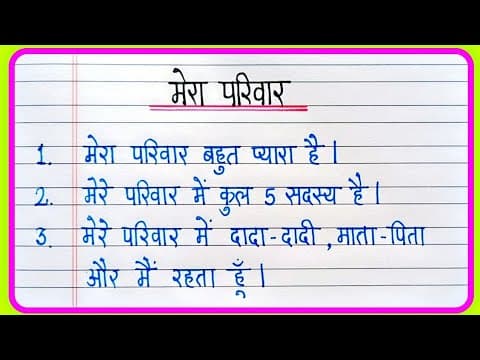 मेरा परिवार
1. मेरा परिवार बहुत प्यारा है।
2. मेरे परिवार में कुल 5 सदस्य है।
3. मेरे परिवार में दादा-दादी, माता-पिता
और मैं रहता हूँ।